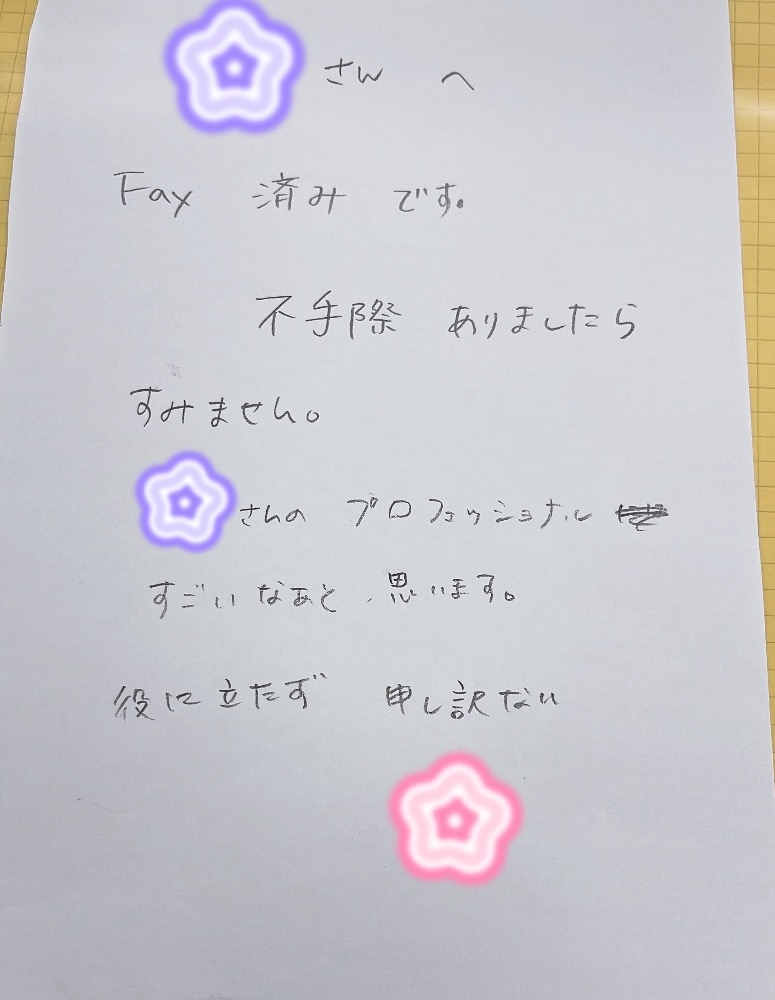 さんへ
Fax 済みです。
不手際 ありましたら
すみません。
さんの プロフェッショナル
すごいなぁと 思います。
役に立たず 申し訳ない